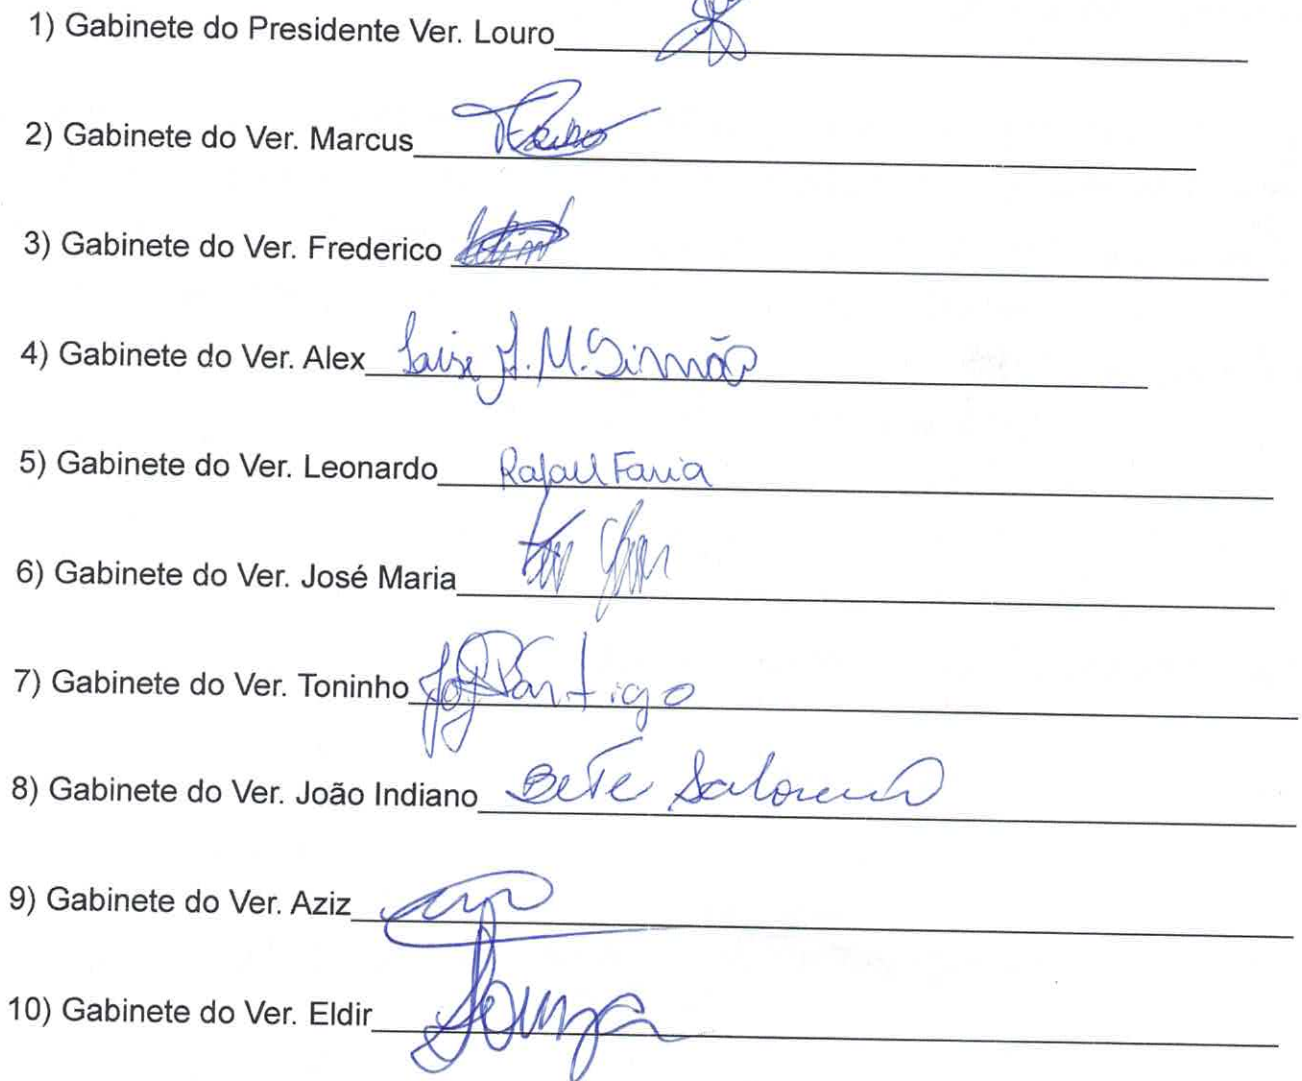 1) Gabinete do Presidente Ver. Louro
2) Gabinete do Ver. Marcus
3) Gabinete do Ver. Frederico
4) Gabinete do Ver. Alex M. Simão
5) Gabinete do Ver. Leonardo Rafael Faria
6) Gabinete do Ver. José Maria
7) Gabinete do Ver. Toninho
8) Gabinete do Ver. João Indiano Bete
9) Gabinete do Ver. Aziz
10) Gabinete do Ver. Eldir Souza